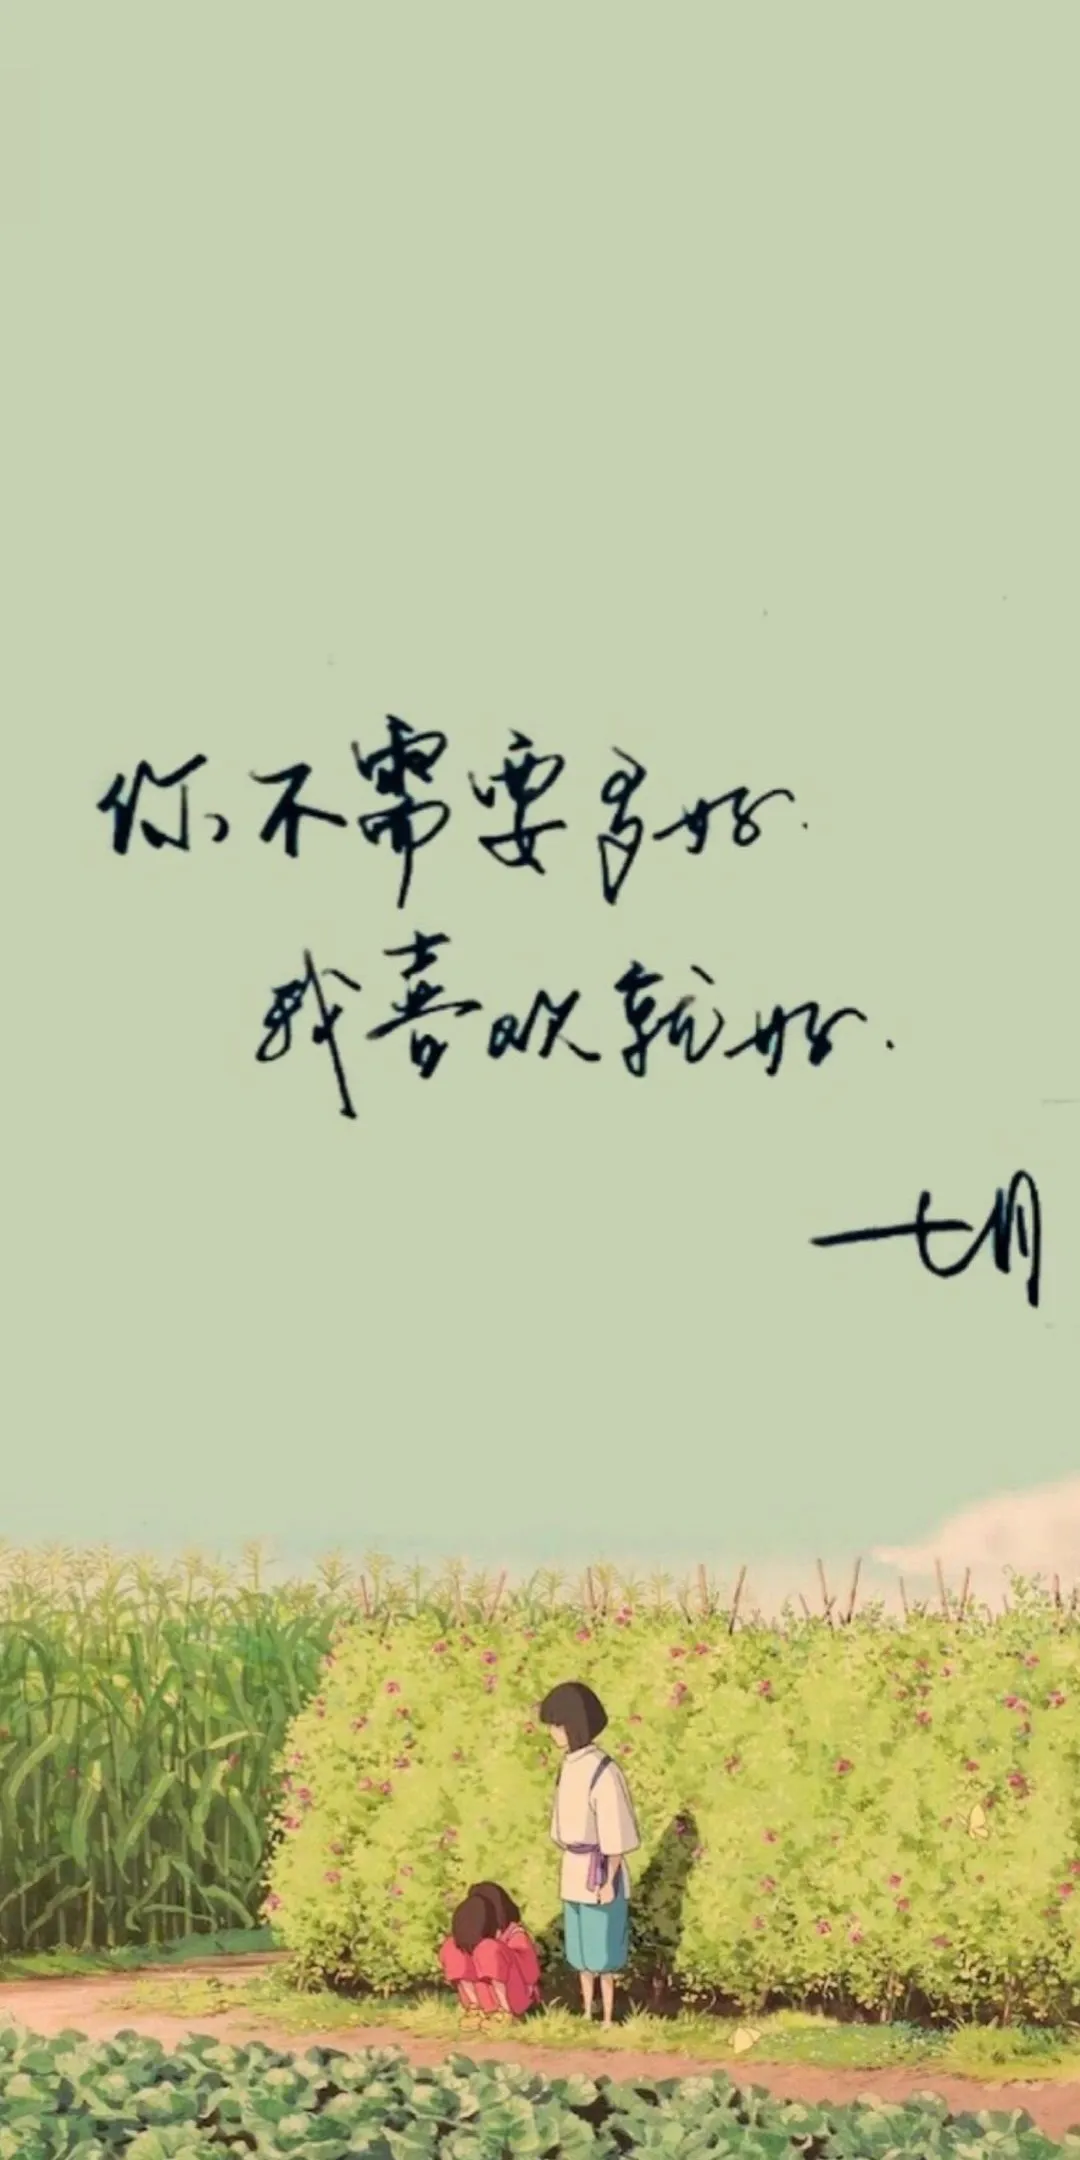 你不需要多好.
我喜欢就好.
七月